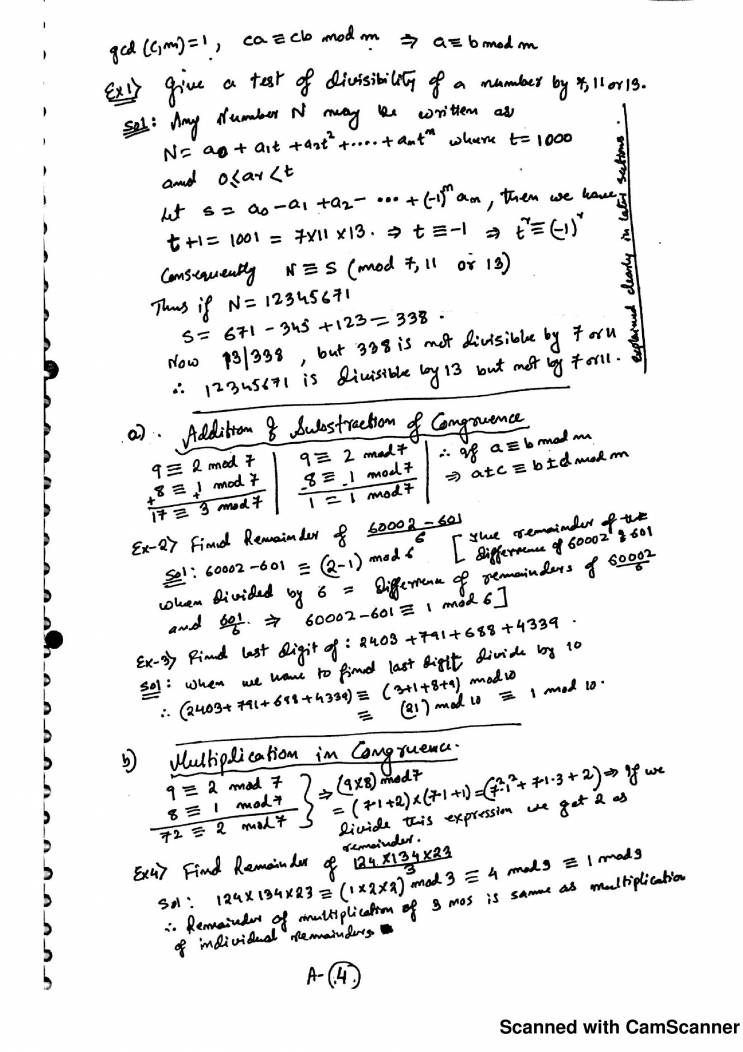 gcd (c,m)=1, ca ≡ cb mod m ⇒ a ≡ b mod m
Ex1) Give a test of divisibility of a number by 7, 11 or 13.
Sol: Any Number N may be written as
N = a0 + a1t + a2t² + ..... + amt^m where t = 1000
and 0 ≤ ar < t
Let s = a0 - a1 + a2 - ... + (-1)^m am, then we have
t+1 = 1001 = 7×11×13. ⇒ t ≡ -1 ⇒ t^r ≡ (-1)^r
Consequently N ≡ S (mod 7, 11 or 13)
Thus if N = 12345671
S = 671 - 345 + 123 = 338 .
Now 13|338, but 338 is not divisible by 7 or 11
∴ 12345671 is divisible by 13 but not by 7 or 11.
explained clearly in later sections.
a). Addition & Substraction of Congruence
9 ≡ 2 mod 7 | 9 ≡ 2 mod 7 | ∴ if a ≡ b mod m
+8 ≡ +1 mod 7 | -8 ≡ -1 mod 7 | ⇒ a±c ≡ b±d mod m
17 ≡ 3 mod 7 | 1 = 1 mod 7
Ex-2) Find Remainder of 60002 - 601 / 6
Sol: 60002 - 601 ≡ (2-1) mod 6 [ The remainder of the difference of 60002 & 601
when divided by 6 = difference of remainders of 60002/6
and 601/6. ⇒ 60002 - 601 ≡ 1 mod 6 ]
Ex-3) Find last digit of : 2403 + 791 + 688 + 4339 .
Sol: when we have to find last digit divide by 10
∴ (2403 + 791 + 688 + 4339) ≡ (3+1+8+9) mod 10
≡ (21) mod 10 ≡ 1 mod 10.
b) Multiplication in Congruence.
9 ≡ 2 mod 7 } ⇒ (9×8) mod 7
8 ≡ 1 mod 7 = (7·1+2)×(7·1+1) = (7²·1² + 7·1·3 + 2) ⇒ If we
72 ≡ 2 mod 7 divide this expression we get 2 as
remainder.
Ex4) Find Remainder of 124×134×23 / 3
Sol: 124×134×23 ≡ (1×2×2) mod 3 ≡ 4 mod 3 ≡ 1 mod 3
∴ Remainder of multiplication of 3 nos is same as multiplication
of individual remainders.
A-(4)
Scanned with CamScanner